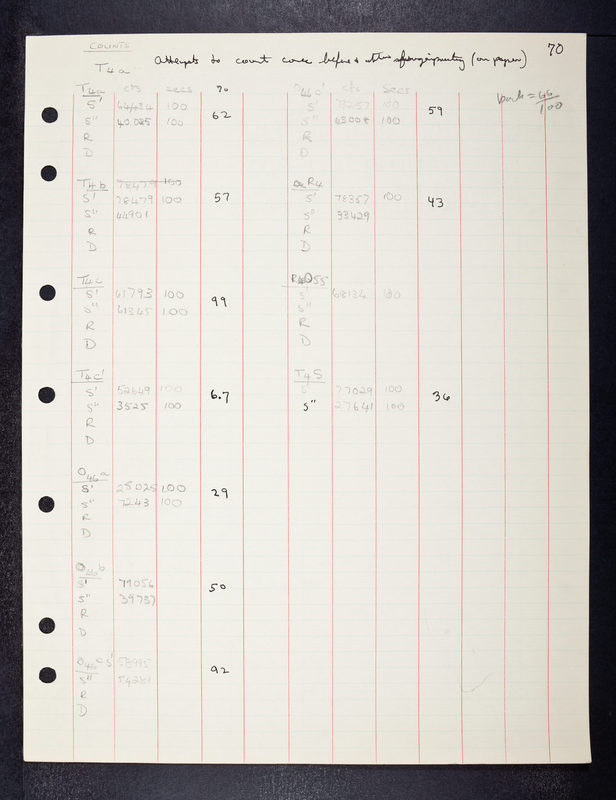 70
COUNTS
T4a
Attempts to count core before & after (on paper)
back = 66/100
T4a cts secs %
S' 64484 100
S" 40085 100 62
R
D
T4b 78479 100
S' 78479 100 57
S" 44901
R
D
T4c
S' 61793 100 99
S" 61345 100
R
D
T4c'
S' 52649 100 6.7
S" 3525 100
R
D
O46a
S' 25025 100 29
S" 7243 100
R
D
O46b
S' 79056 50
S" 39737
R
D
S' 58995 92
S" 54281
R
D
cts secs
S' 73057 100 59
S" 43008 100
R
D
R4
S' 78357 100 43
S" 33429
R
D
R4D55
S' 68134 100
S"
R
D
T4S
S' 77029 100 36
S" 27641 100